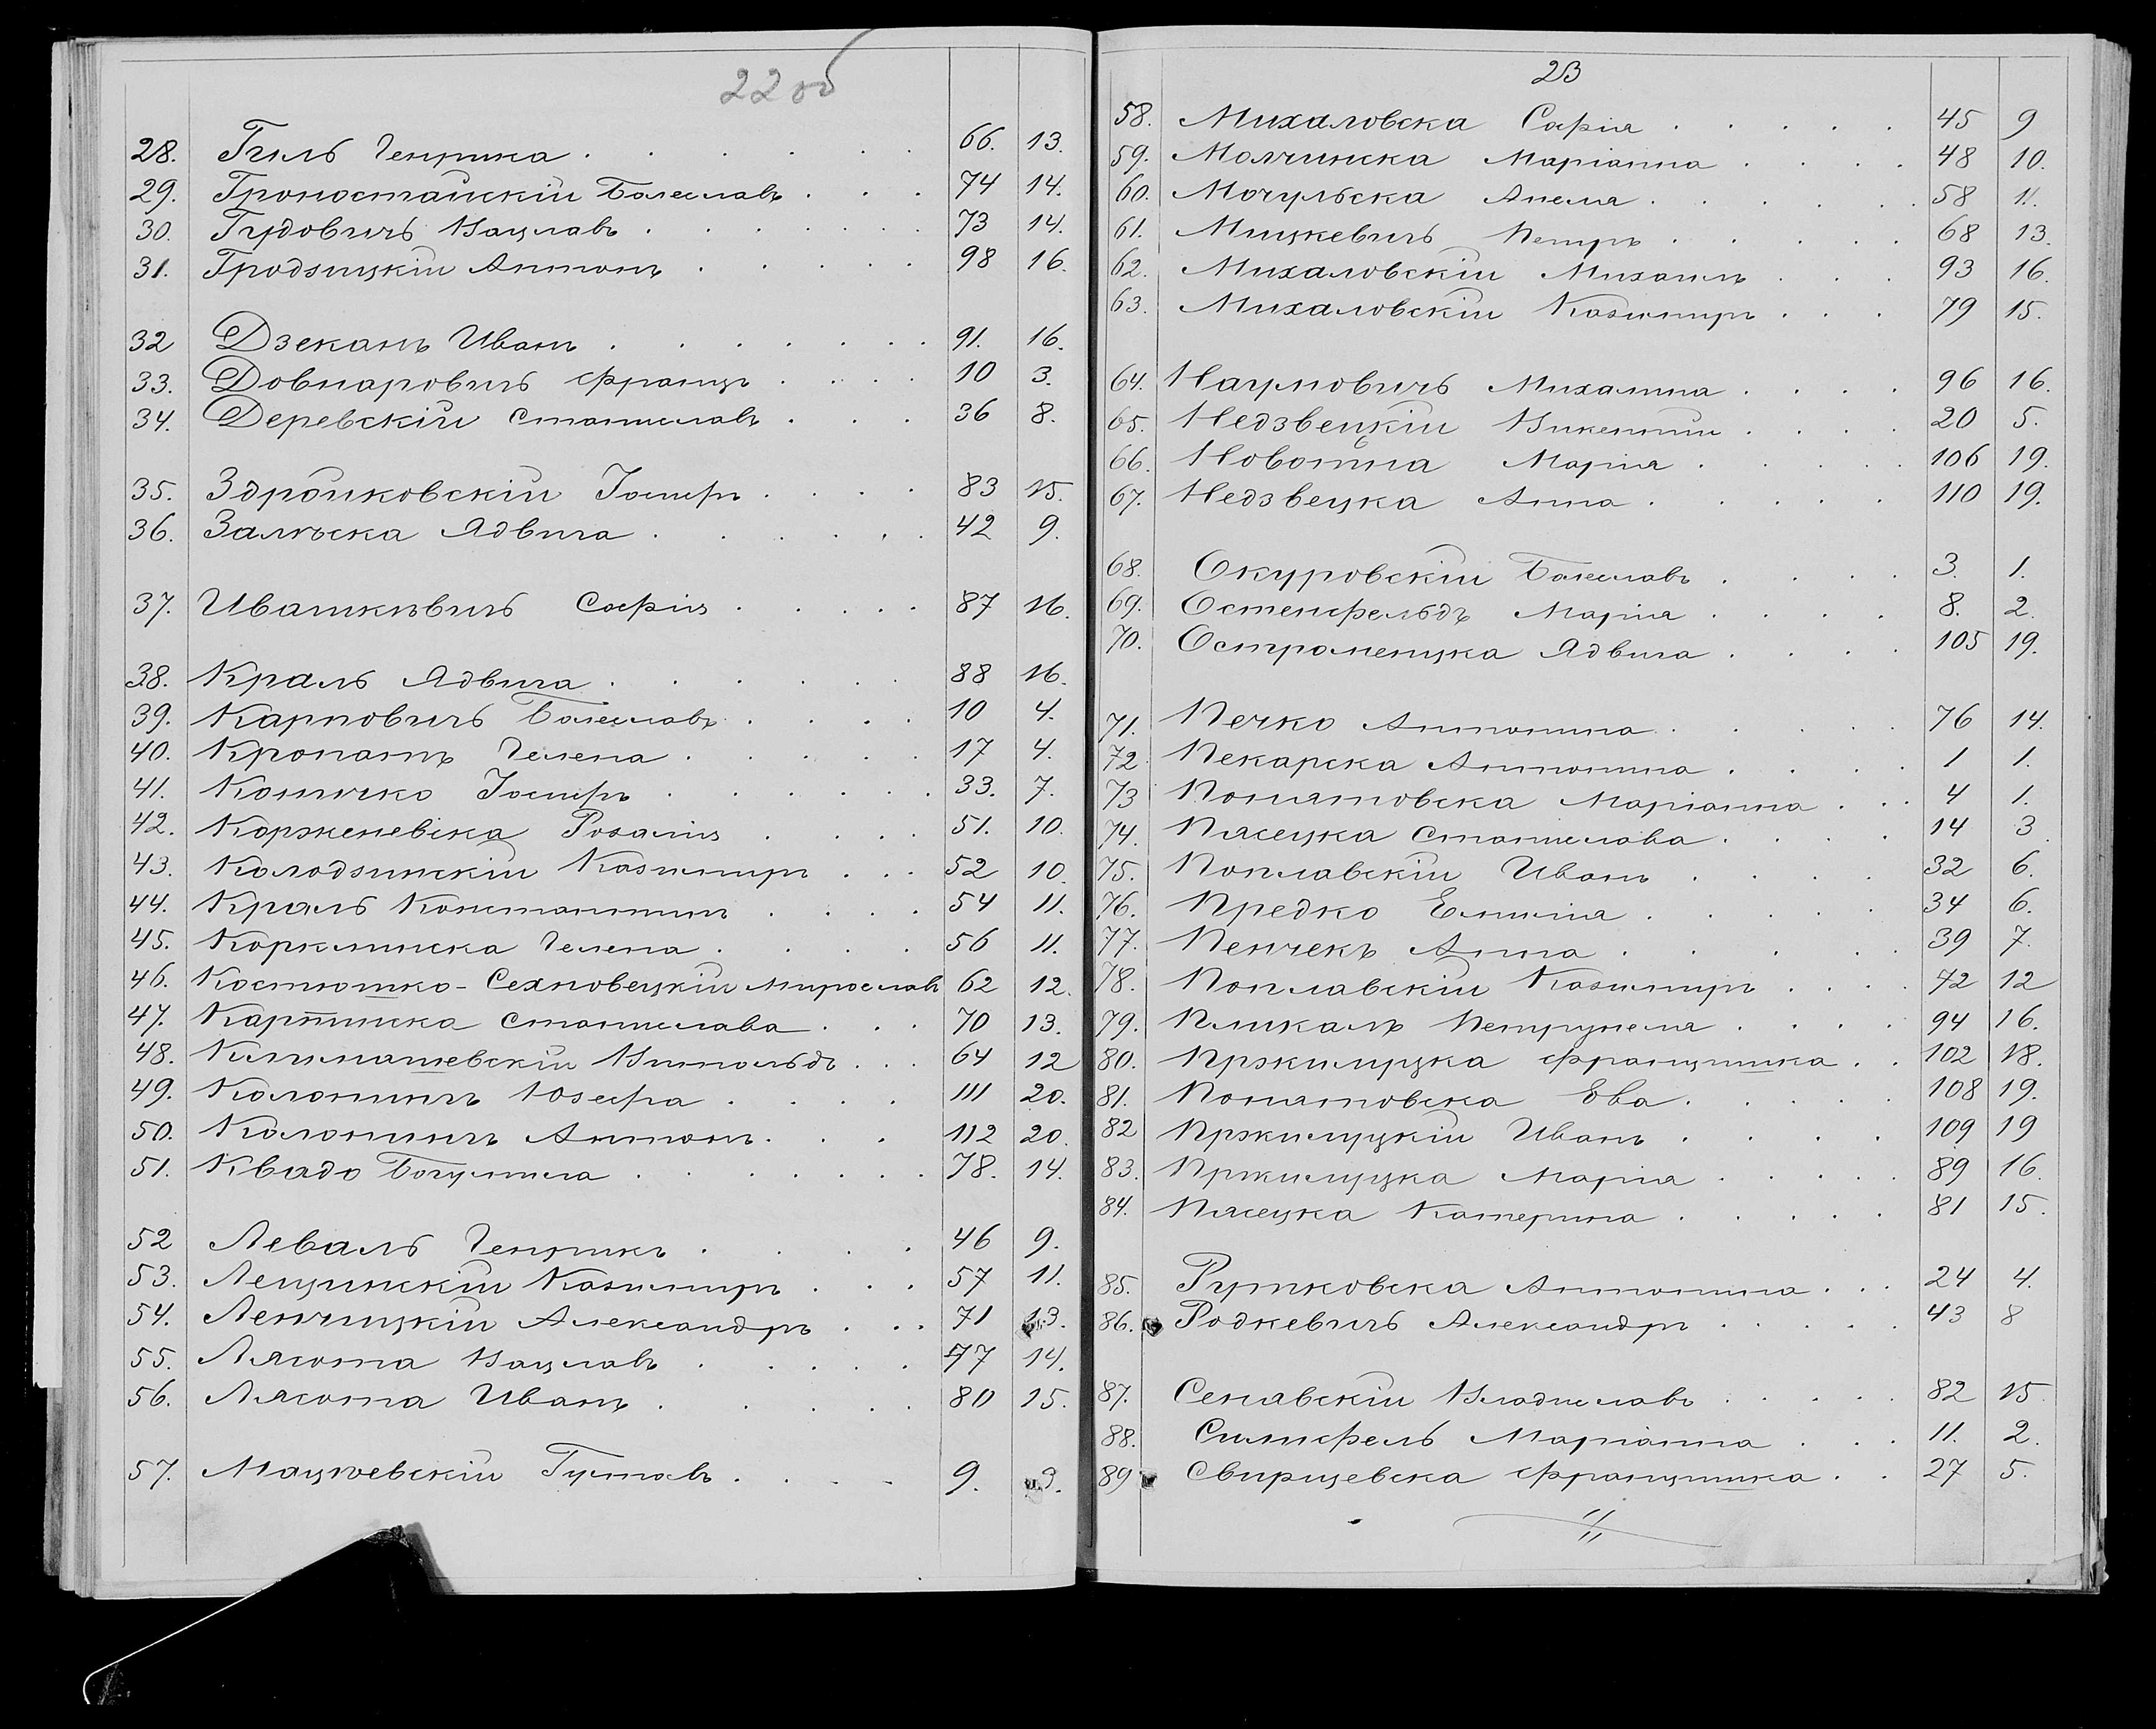 22 об
28. Гиль Генрика 66. 13.
29. Гроностайскій Болеславъ 74 14.
30. Гудовичъ Вацлавъ 73 14.
31. Гродзицкій Антонъ 98 16.
32 Дзеканъ Иванъ 91. 16.
33. Довнаровичъ Францъ 10 3.
34. Деревскій Станиславъ 36 8.
35. Здройковскій Іосифъ 83 15.
36. Залѣска Ядвига 42 9.
37. Ивашкѣвичъ Софія 87 16.
38. Краль Ядвига 88 16.
39. Карповичъ Болеславъ 10 4.
40. Кропатъ Гелена 17 4.
41. Іосифъ 33. 7.
42. Корженевска Розалія 51. 10.
43. Колодзинскій Казимиръ 52 10.
44. Краль Константинъ 54 11.
45. Гелена 56 11.
46. Костюшко-Сехновецкій Мирославъ 62 12.
47. Карпинска Станислава 70 13.
48. Климашевскій Витольдъ 64 12
49. Юзефа 111 20.
50. Антонъ 112 20.
51. Квадо Богумила 78. 14.
52 Леваль Генрикъ 46 9.
53. Лещинскій Казимиръ 57 11.
54. Ленчицкій Александръ 71 13.
55. Лясота Вацлавъ 77 14.
56. Лясота Иванъ 80 15.
57. Мацѣевскій Густавъ 9. 3.
23
58. Михаловска Софія 45 9
59. Молчинска Маріанна 48 10.
60. Мочульска Анеля 58 11.
61. Мицкевичъ Петръ 68 13.
62. Михаловскій Михаилъ 93 16.
63. Михаловскій Казимиръ 79 15.
64. Наумовичъ Михалина 96 16.
65. Недзвецкій Викентій 20 5.
66. Марія 106 19.
67. Недзвецка Анна 110 19.
68. Окуровскій Болеславъ 3. 1.
69. Остенфельдъ Марія 8. 2.
70. Остромецка Ядвига 105 19.
71. Печко Антонина 76 14.
72 Пекарска Антонина 1 1.
73 Понятовска Маріанна 4 1.
74. Пясецка Станислава 14 3
75. Поплавскій Иванъ 32 6.
76. Предко Емилія 34 6.
77. Пенчекъ Анна 39 7.
78. Поплавскій Казимиръ 72 12
79. Пликалъ Петрунеля 94 16.
80. Пржилуцка Францишка 102 18.
81. Понятовска Ева 108 19.
82 Пржилуцкій Иванъ 109 19
83. Пржилуцка Марія 89 16.
84. Пясецка Катерина 81 15.
85. Рутковска Антонина 24 4.
86. Родкевичъ Александръ 43 8
87. Сенявскій Владиславъ 82 15
88. Маріанна 11. 2.
89 Свирщевска Францишка 27 5.